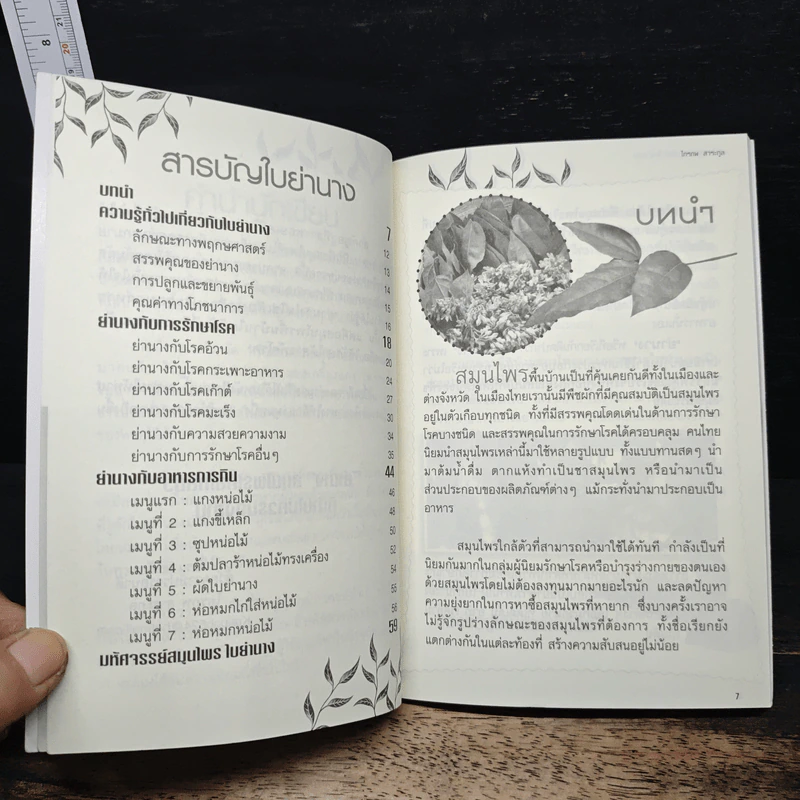 สารบัญใบย่านาง
บทนำ
ความรู้ทั่วไปเกี่ยวกับใบย่านาง 7
ลักษณะทางพฤกษศาสตร์ 12
สรรพคุณของย่านาง 13
การปลูกและขยายพันธุ์ 14
คุณค่าทางโภชนาการ 15
16
ย่านางกับการรักษาโรค 18
ย่านางกับโรคอ้วน 20
ย่านางกับโรคกระเพาะอาหาร 24
ย่านางกับโรคเก๊าต์ 27
ย่านางกับโรคมะเร็ง 30
ย่านางกับความสวยความงาม 34
ย่านางกับการรักษาโรคอื่นๆ 35
ย่านางกับอาหารการกิน 44
เมนูแรก : แกงหน่อไม้ 46
เมนูที่ 2 : แกงขี้เหล็ก 48
เมนูที่ 3 : ซุปหน่อไม้ 50
เมนูที่ 4 : ต้มปลาร้าหน่อไม้ทรงเครื่อง 52
เมนูที่ 5 : ผัดใบย่านาง 54
เมนูที่ 6 : ห่อหมกไก่ใส่หน่อไม้ 55
เมนูที่ 7 : ห่อหมกหน่อไม้
มหัศจรรย์สมุนไพร ใบย่านาง 59
บทนำ
สมุนไพรพื้นบ้านเป็นที่คุ้นเคยกันดีทั้งในเมืองและ
ต่างจังหวัด ในเมืองไทยเรานั้นมีพืชผักที่มีคุณสมบัติเป็นสมุนไพร
อยู่ในตัวเกือบทุกชนิด ทั้งที่มีสรรพคุณโดดเด่นในด้านการรักษา
โรคบางชนิด และสรรพคุณในการรักษาโรคได้ครอบคลุม คนไทย
นิยมนำสมุนไพรเหล่านี้มาใช้หลายรูปแบบ ทั้งแบบทานสดๆ นำ
มาต้มน้ำดื่ม ตากแห้งทำเป็นชาสมุนไพร หรือนำมาเป็น
ส่วนประกอบของผลิตภัณฑ์ต่างๆ แม้กระทั่งนำมาประกอบเป็น
อาหาร
สมุนไพรใกล้ตัวที่สามารถนำมาใช้ได้ทันที กำลังเป็นที่
นิยมกันมากในกลุ่มผู้นิยมรักษาโรคหรือบำรุงร่างกายของตนเอง
ด้วยสมุนไพรโดยไม่ต้องลงทุนมากมายอะไรนัก และลดปัญหา
ความยุ่งยากในการหาซื้อสมุนไพรที่หายาก ซึ่งบางครั้งเราอาจ
ไม่รู้จักรูปร่างลักษณะของสมุนไพรที่ต้องการ ทั้งชื่อเรียกยัง
แตกต่างกันในแต่ละท้องที่ สร้างความสับสนอยู่ไม่น้อย
7
8
20
21